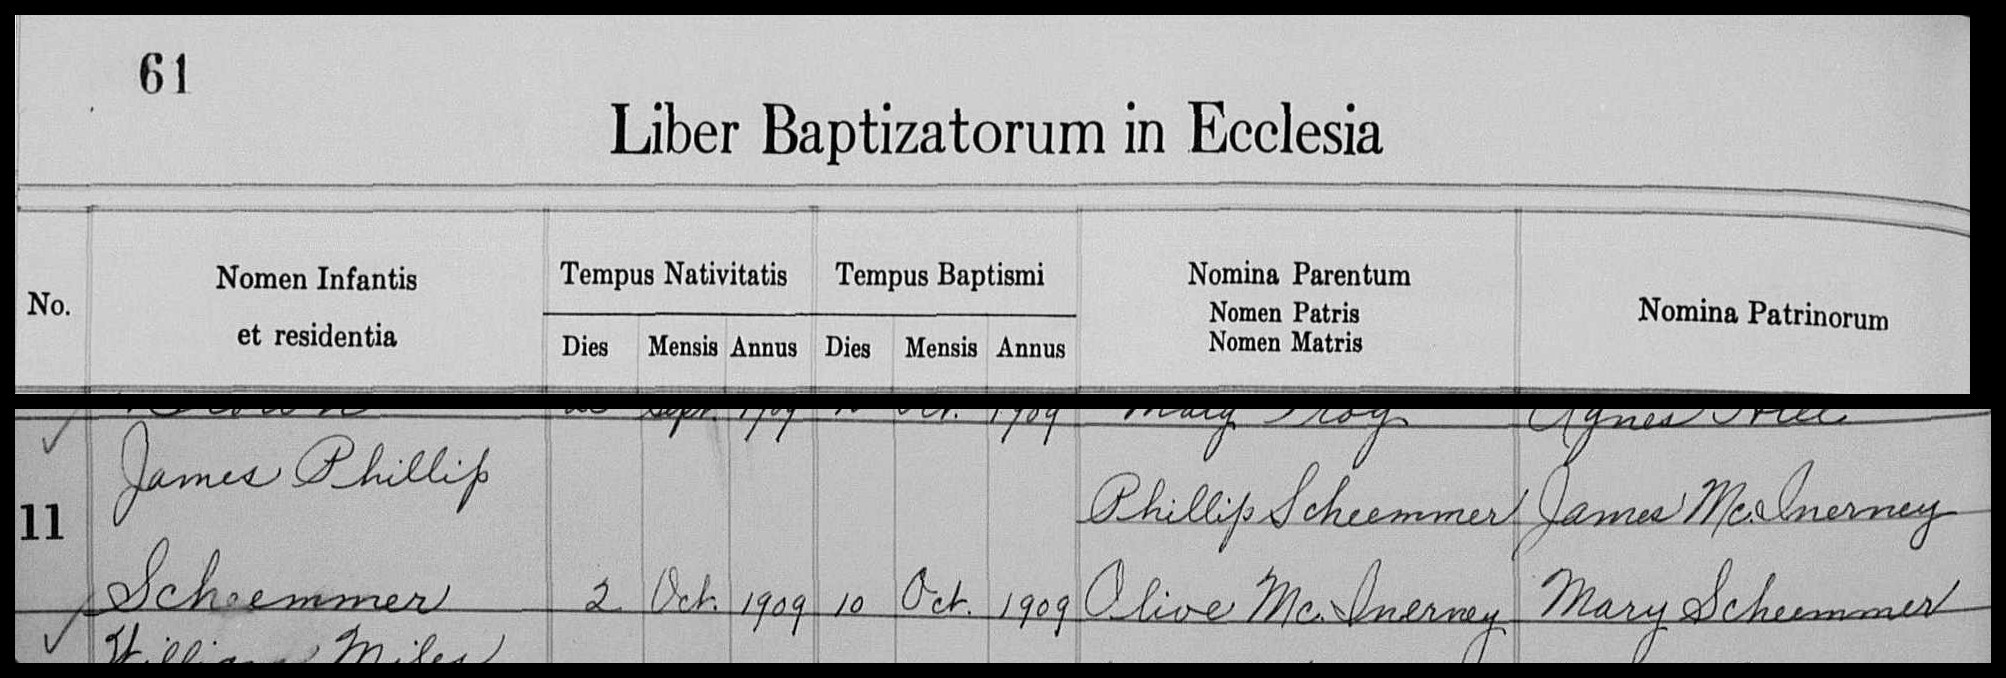 61
Liber Baptizatorum in Ecclesia
No.
Nomen Infantis
et residentia
Tempus Nativitatis
Dies Mensis Annus
Tempus Baptismi
Dies Mensis Annus
Nomina Parentum
Nomen Patris
Nomen Matris
Nomina Patrinorum
Sept. 1909 Oct. 1909 Mary Troy Agnes
11
James Phillip
Phillip Scheemmer James Mc. Inerney
Scheemmer 2 Oct. 1909 10 Oct. 1909 Olive Mc. Inerney Mary Scheemmer
William Miles